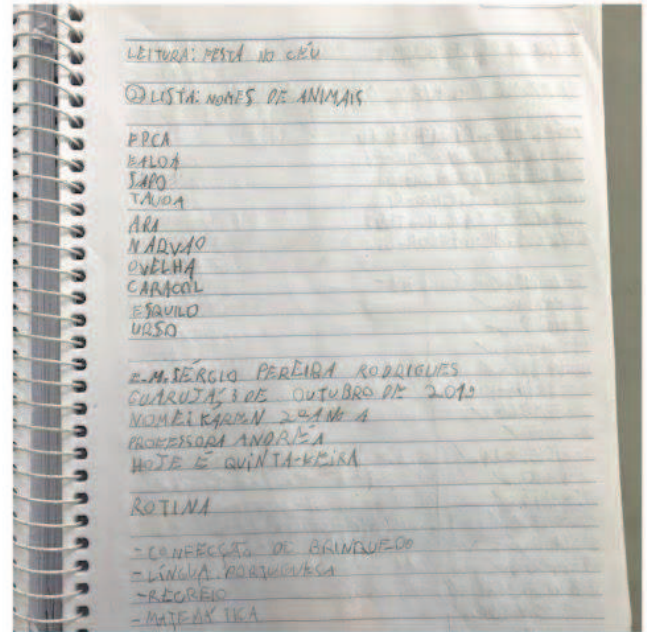 LEITURA: FESTA NO CÉU
② LISTA: NOMES DE ANIMAIS
FPCA
BALOA
SAPO
TAUOA
ARA
NADVAO
OVELHA
CARACOL
ESQUILO
URSO
E.M. SÉRGIO PEREIRA RODRIGUES
GUARUJÁ, 3 DE OUTUBRO DE 2019
NOME: KAREN 2º ANO A
PROFESSORA ANDRÉA
HOJE É QUINTA-FEIRA
ROTINA
- CONFECÇÃO DE BRINQUEDO
- LÍNGUA PORTUGUESA
- RECREIO
- MATEMÁTICA